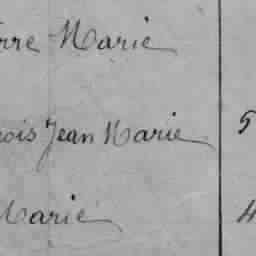 rre Marie
ois Jean Marie 5
Marie 4